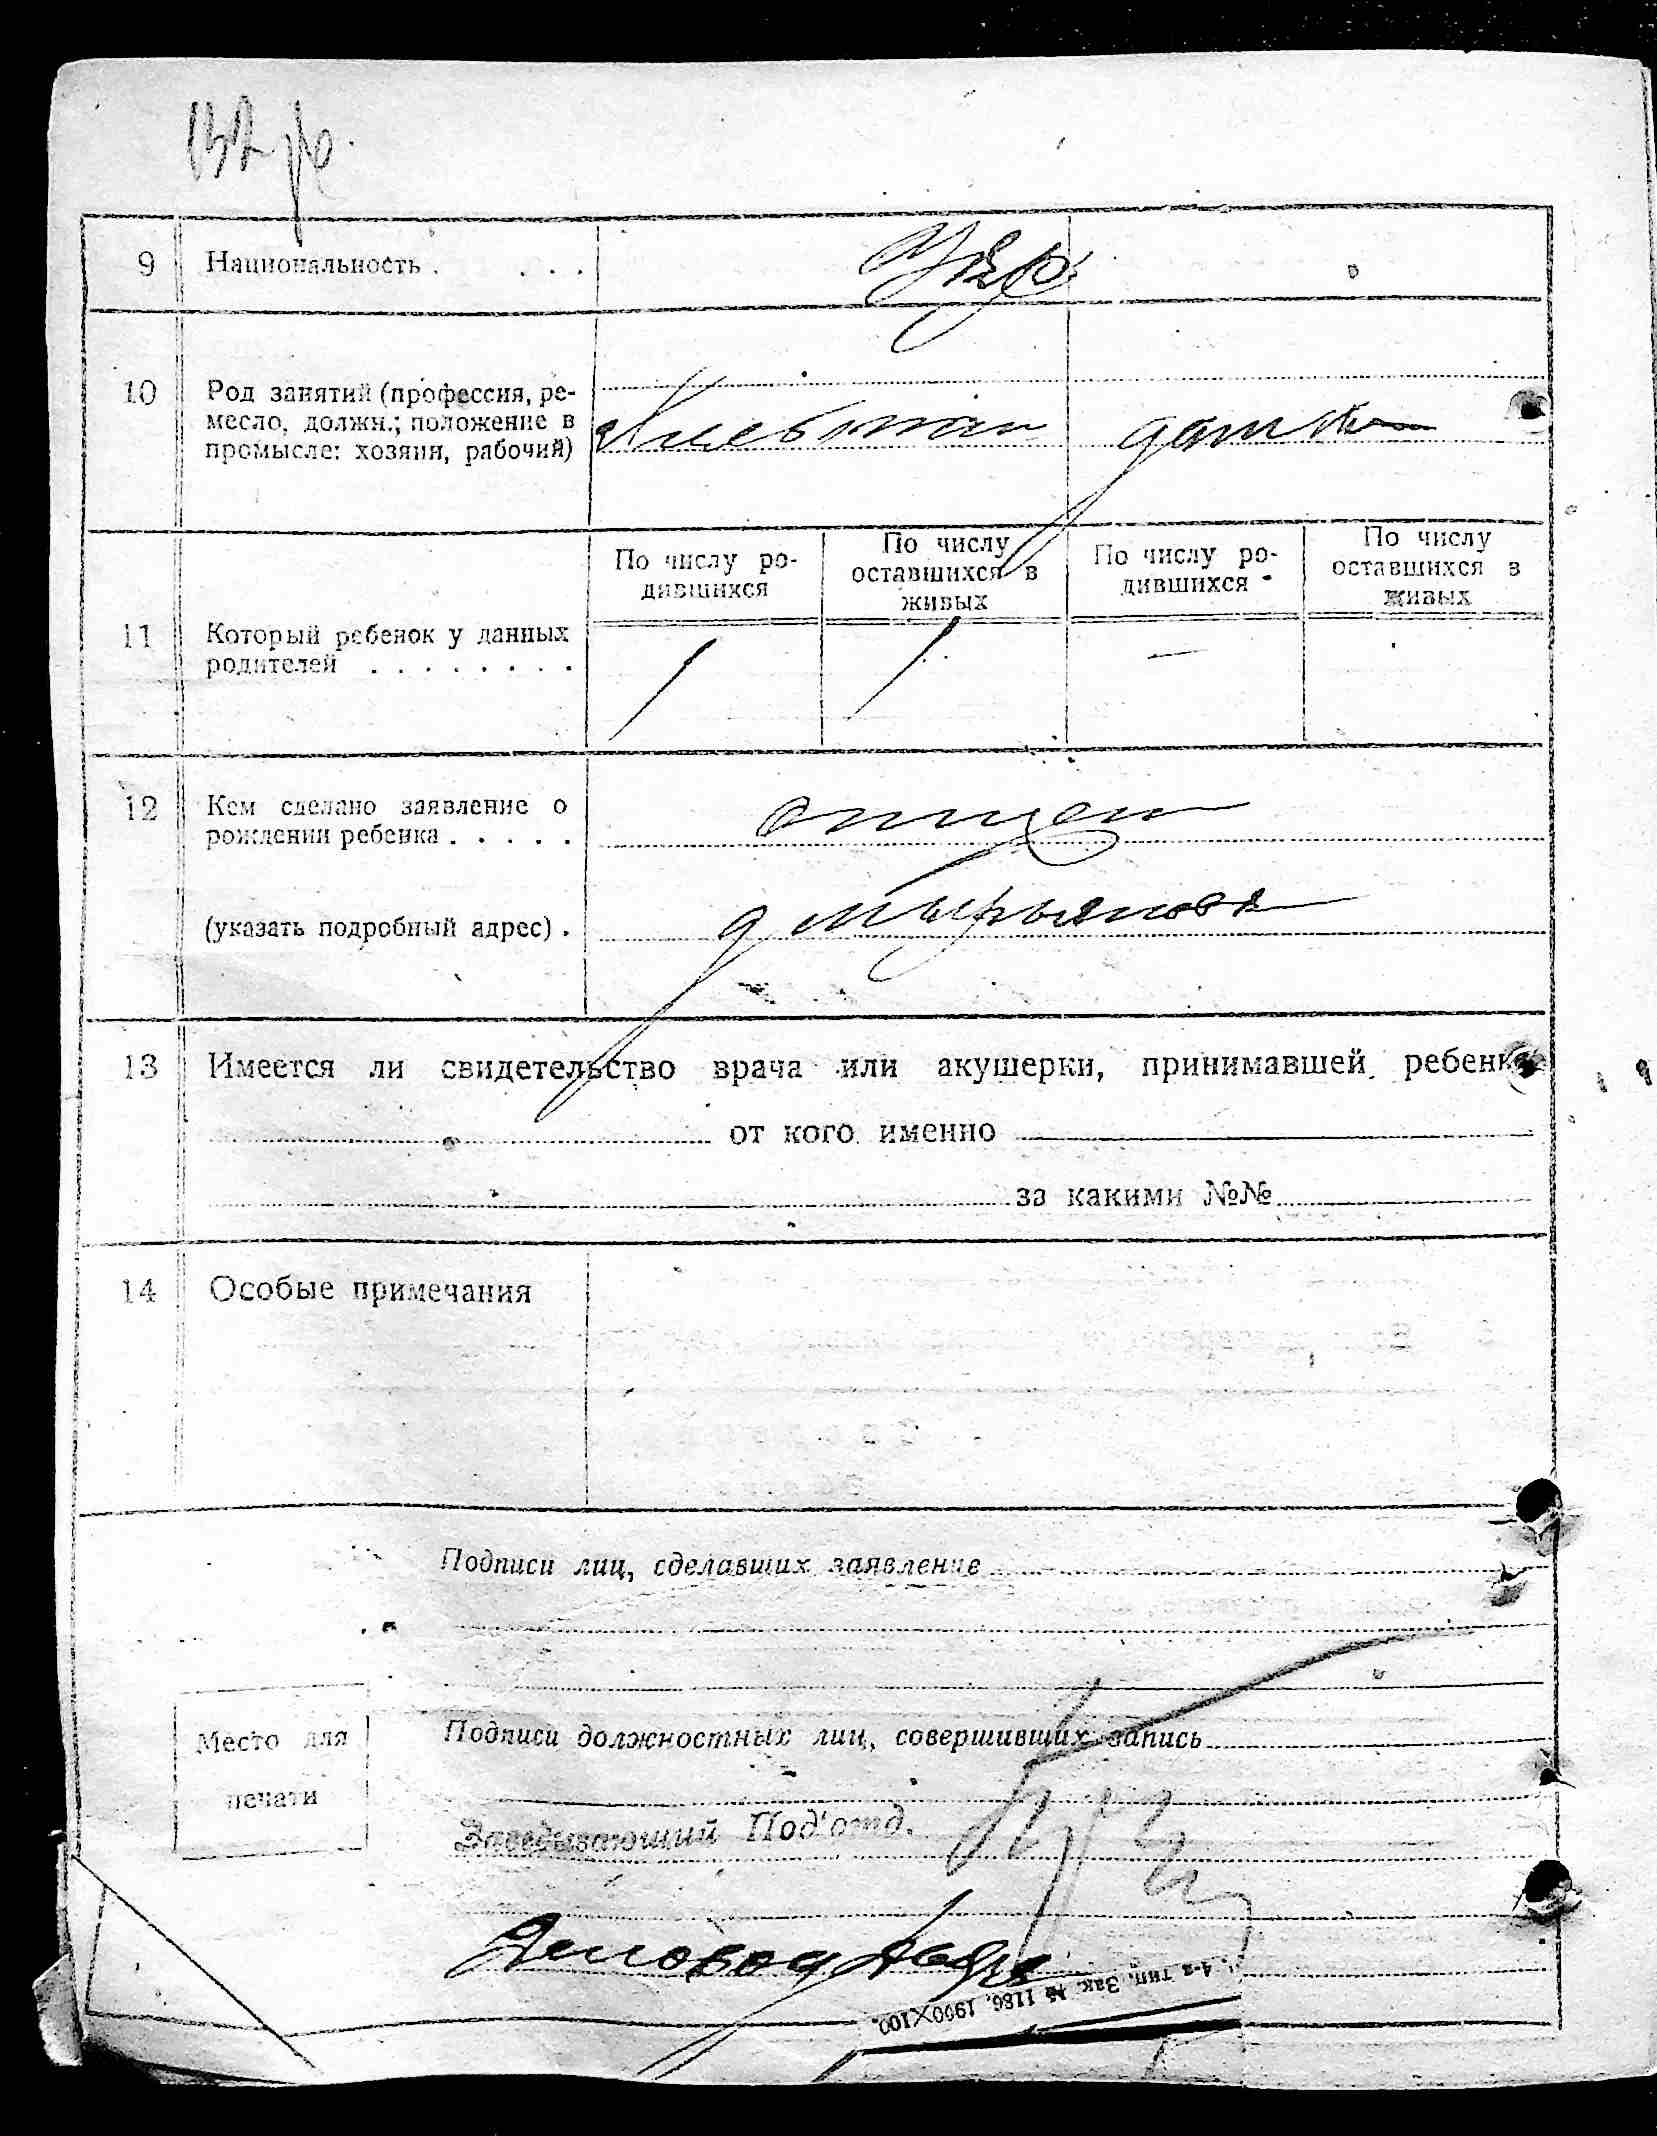 9 Национальность . . . . Укр
10 Род занятий (профессия, ре-
месло, должн.; положение в
промысле: хозяин, рабочий)
Хлебопаш дом хоз
По числу ро-
дившихся
По числу
оставшихся в
живых
По числу ро-
дившихся
По числу
оставшихся в
живых
11 Который ребенок у данных
родителей . . . . . . . .
1 1 —
12 Кем сделано заявление о
рождении ребенка . . . . .
отцем
(указать подробный адрес) .
13 Имеется ли свидетельство врача или акушерки, принимавшей ребенка
от кого именно
за какими №№
14 Особые примечания
Подписи лиц, сделавших заявление
Место для
печати
Подписи должностных лиц, совершивших запись
Заведывающий Под'отд.
Деловод
4-я тип. Зак. № 1186. 1900×100.